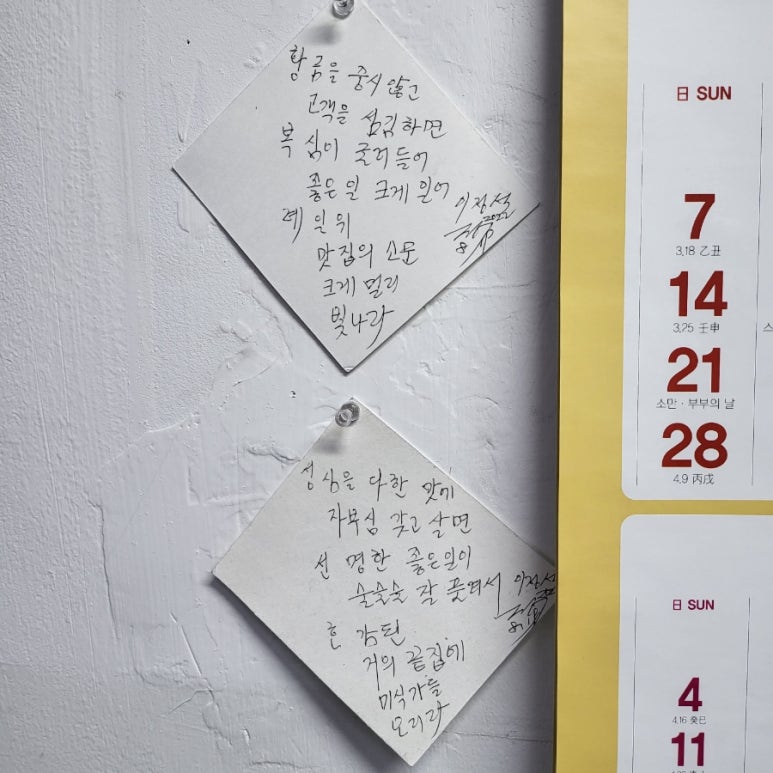 황금을 중시 않고
고객을 섬김하면
복 심이 굴러 들어
좋은 일 크게 일어
례 일 위
맛집의 소문
크게 멀리
빛나라
이장석
2022
8
정 심을 다한 맛에
자부심 갖고 살면
선 명한 좋은일이
술술술 잘 풀려서
이장석
8.
흔 감된
거의 끝집에
미식가들
모리라
日 SUN
7
3.18 乙丑
14
3.25 壬申
21
소만 · 부부의 날
28
4.9 丙戌
日 SUN
4
4.16 癸巳
11